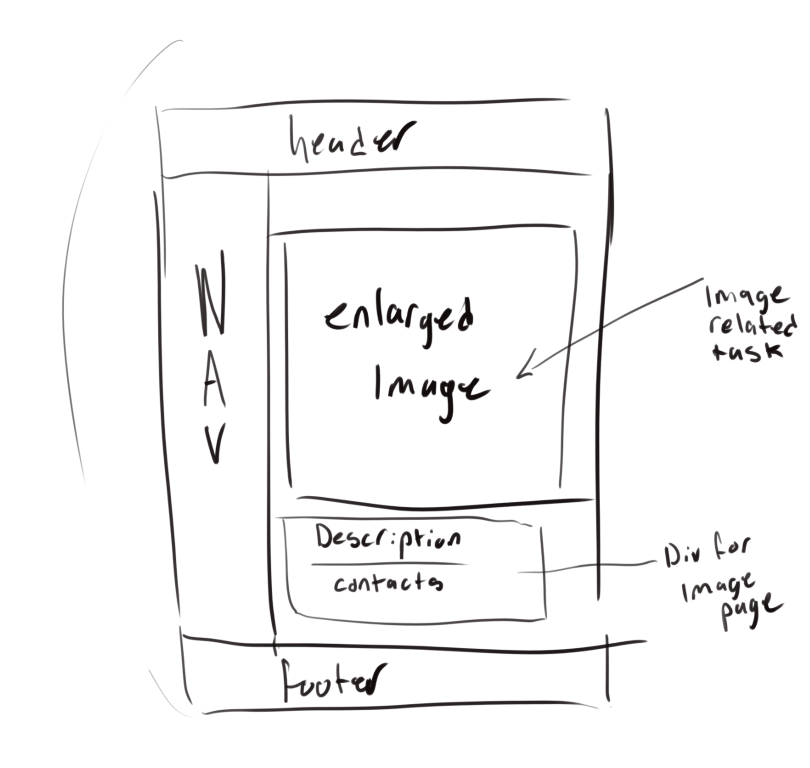 header
NAV
enlarged
Image
Image
related
task
Description
contacts
Div for
Image
page
footer